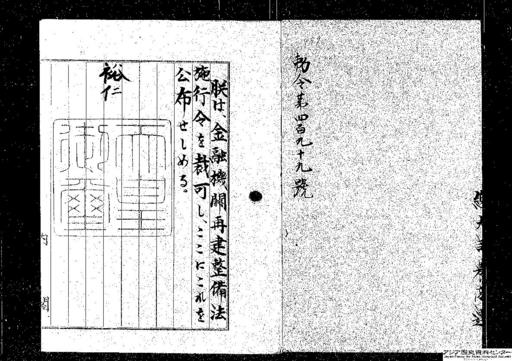 勅令第四百九十九號
朕は、金融機関再建整備法
施行令を裁可し、ここにこれを
公布せしめる。
裕仁
天皇
御璽
内閣
アジア歴史資料センター